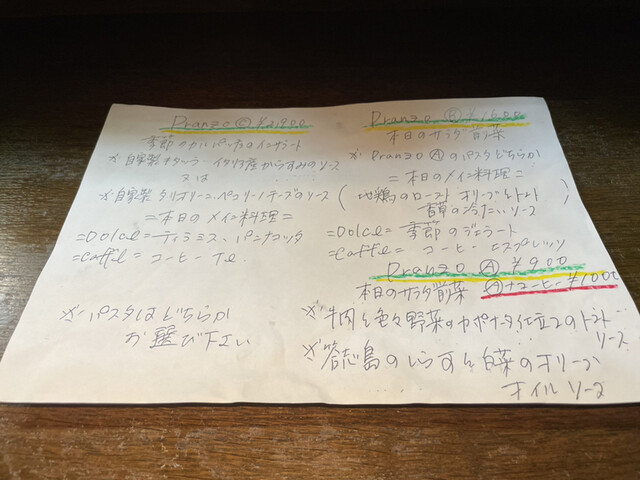 Pranzo Ⓒ ¥2,800
季節のカルパッチョのインサラート
※自家製キタッラ・イタリア産からすみのソース
又は
※自家製タリオリーニ・ペコリーノチーズのソース
=本日のメイン料理=
=Dolce=ティラミス、パンナコッタ
=Caffé=コーヒー Te.
※パスタはどちらか
お選び下さい
Pranzo Ⓑ ¥1,600
本日のサラダ前菜
※Pranzo Ⓐのパスタどちらか
=本日のメイン料理=
(地鶏のロースト オリーブとトマト
香草の冷たいソース)
=Dolce=季節のジェラート
=Caffé=コーヒー エスプレッソ
Pranzo Ⓐ ¥900
本日のサラダ前菜 Ⓐ+コーヒー ¥1000
※牛肉と色々野菜のカポナータ仕立てのトマト
ソース
※答志島のしらすと白菜のオリーブ
オイルソース